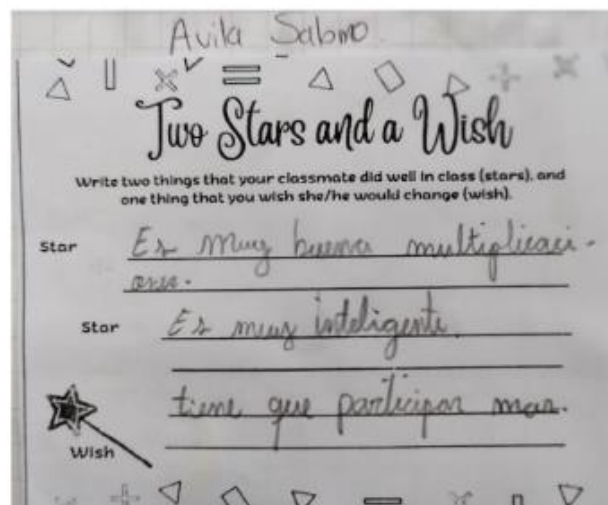 Avila Sabino
Two Stars and a Wish
Write two things that your classmate did well in class (stars), and
one thing that you wish she/he would change (wish).
Star Es muy buena multiplicaci-
ones.
Star Es muy inteligente.
tiene que participar mas.
Wish